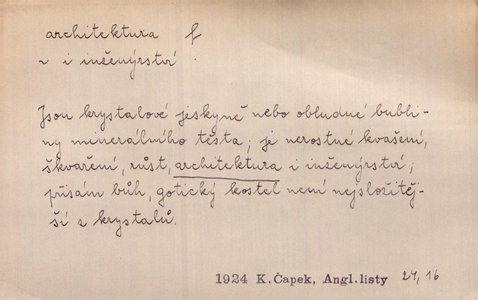 architektura f
v i inženýrství
Jsou krystalové jeskyně nebo obludné bubli-
ny minerálního těsta; je nerostné kvašení,
škvaření, růst, architektura i inženýrství;
přisám bůh, gotický kostel není nejsložitěj-
ší z krystalů.
1924 K. Čapek, Angl. listy 24, 16